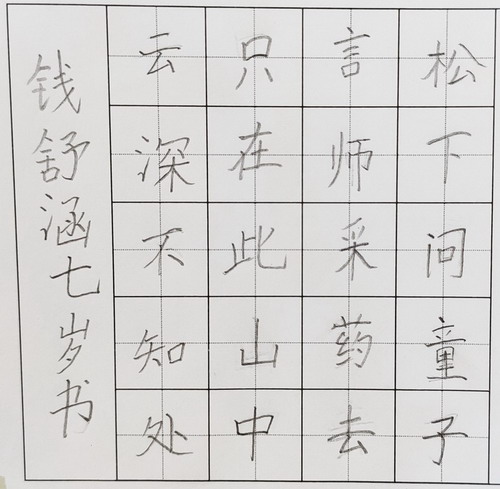 松下问童子
言师采药去
只在此山中
云深不知处
钱舒涵七岁书